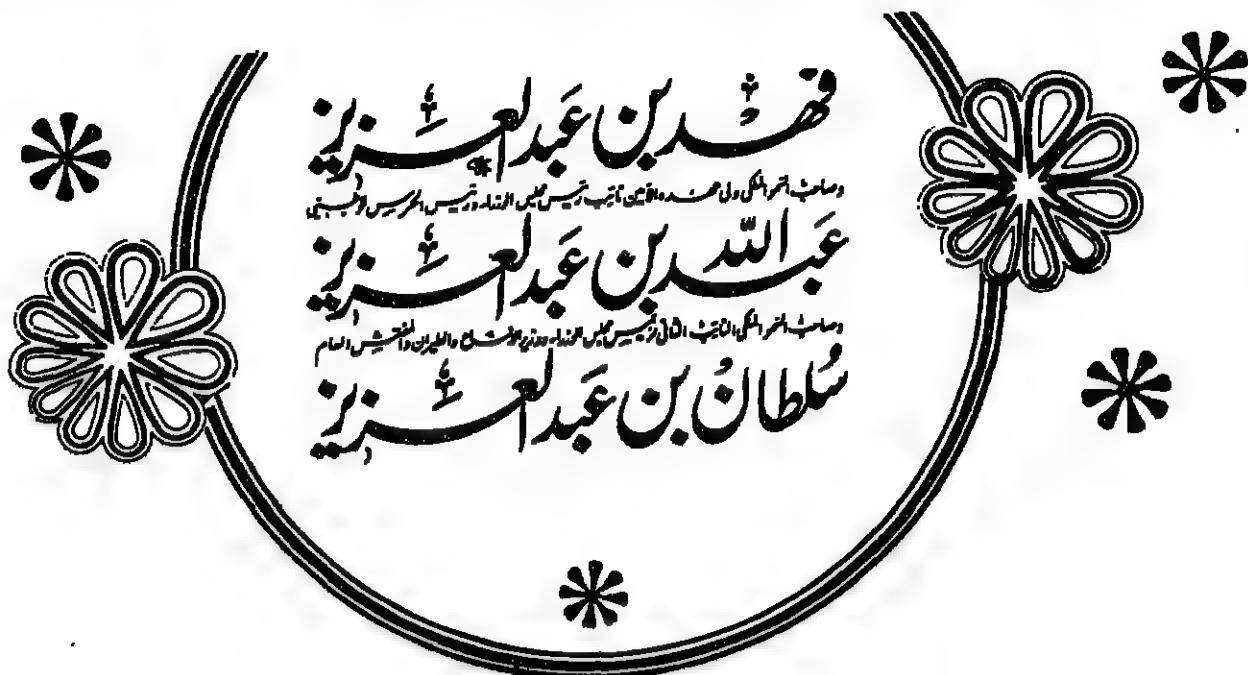 فهد بن عبد العزيز
وصاحب السمو الملكي ولي عهده الأمين نائب رئيس مجلس الوزراء ورئيس الحرس الوطني
عبد الله بن عبد العزيز
وصاحب السمو الملكي النائب الثاني لرئيس مجلس الوزراء ووزير الدفاع والطيران والمفتش العام
سلطان بن عبد العزيز